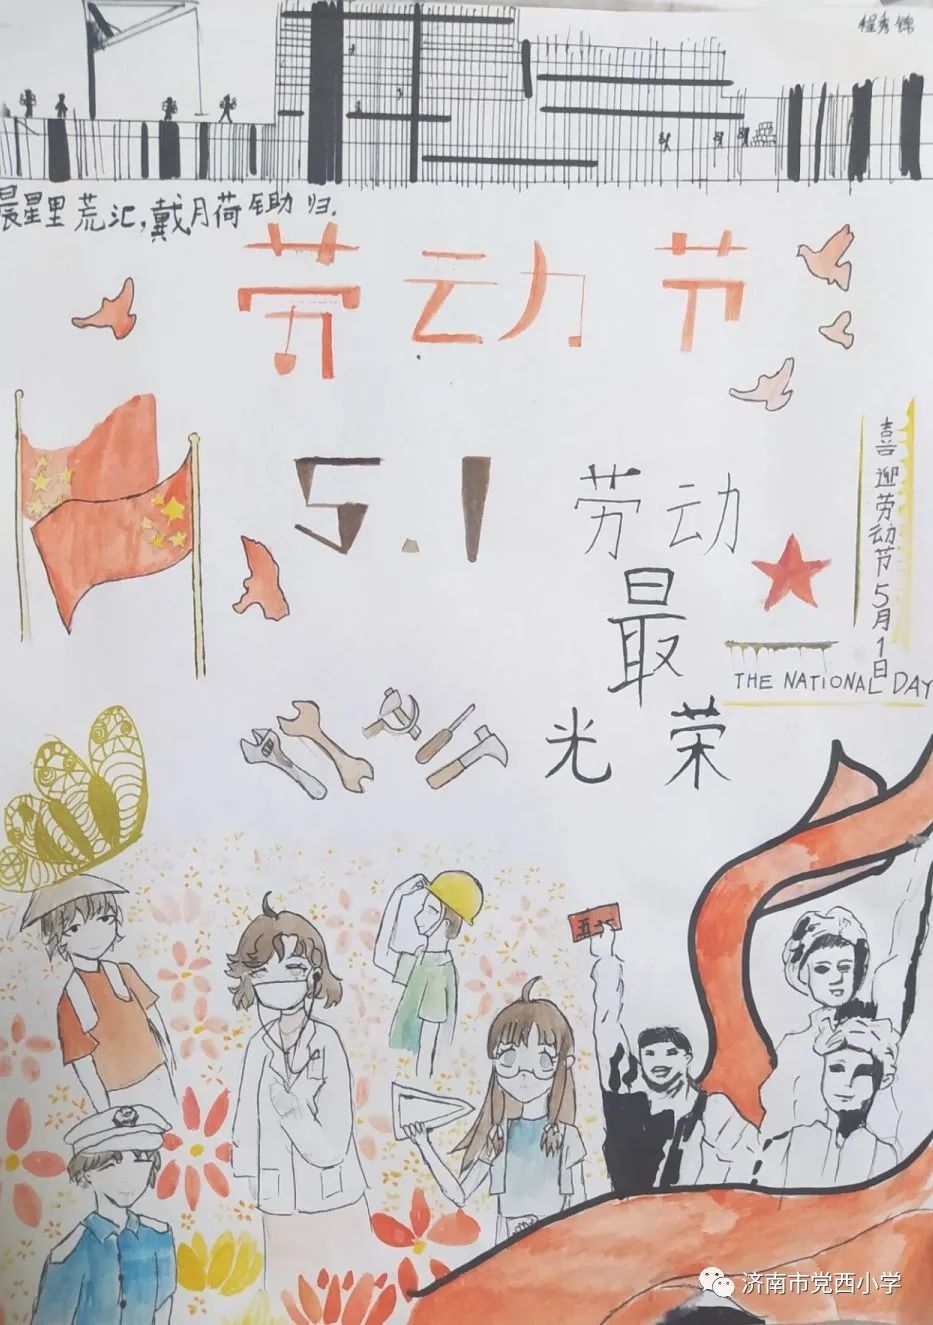 程秀锦
晨星里荒汇,戴月荷锄归.
劳动节
5.1
劳动
最
光荣
喜迎劳动节5月1日
THE NATIONAL DAY
五一
济南市党西小学